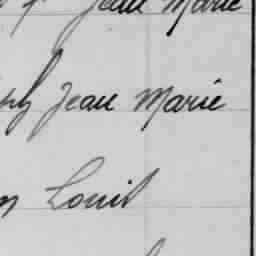 Jean Marie
Jean Marie
Louis